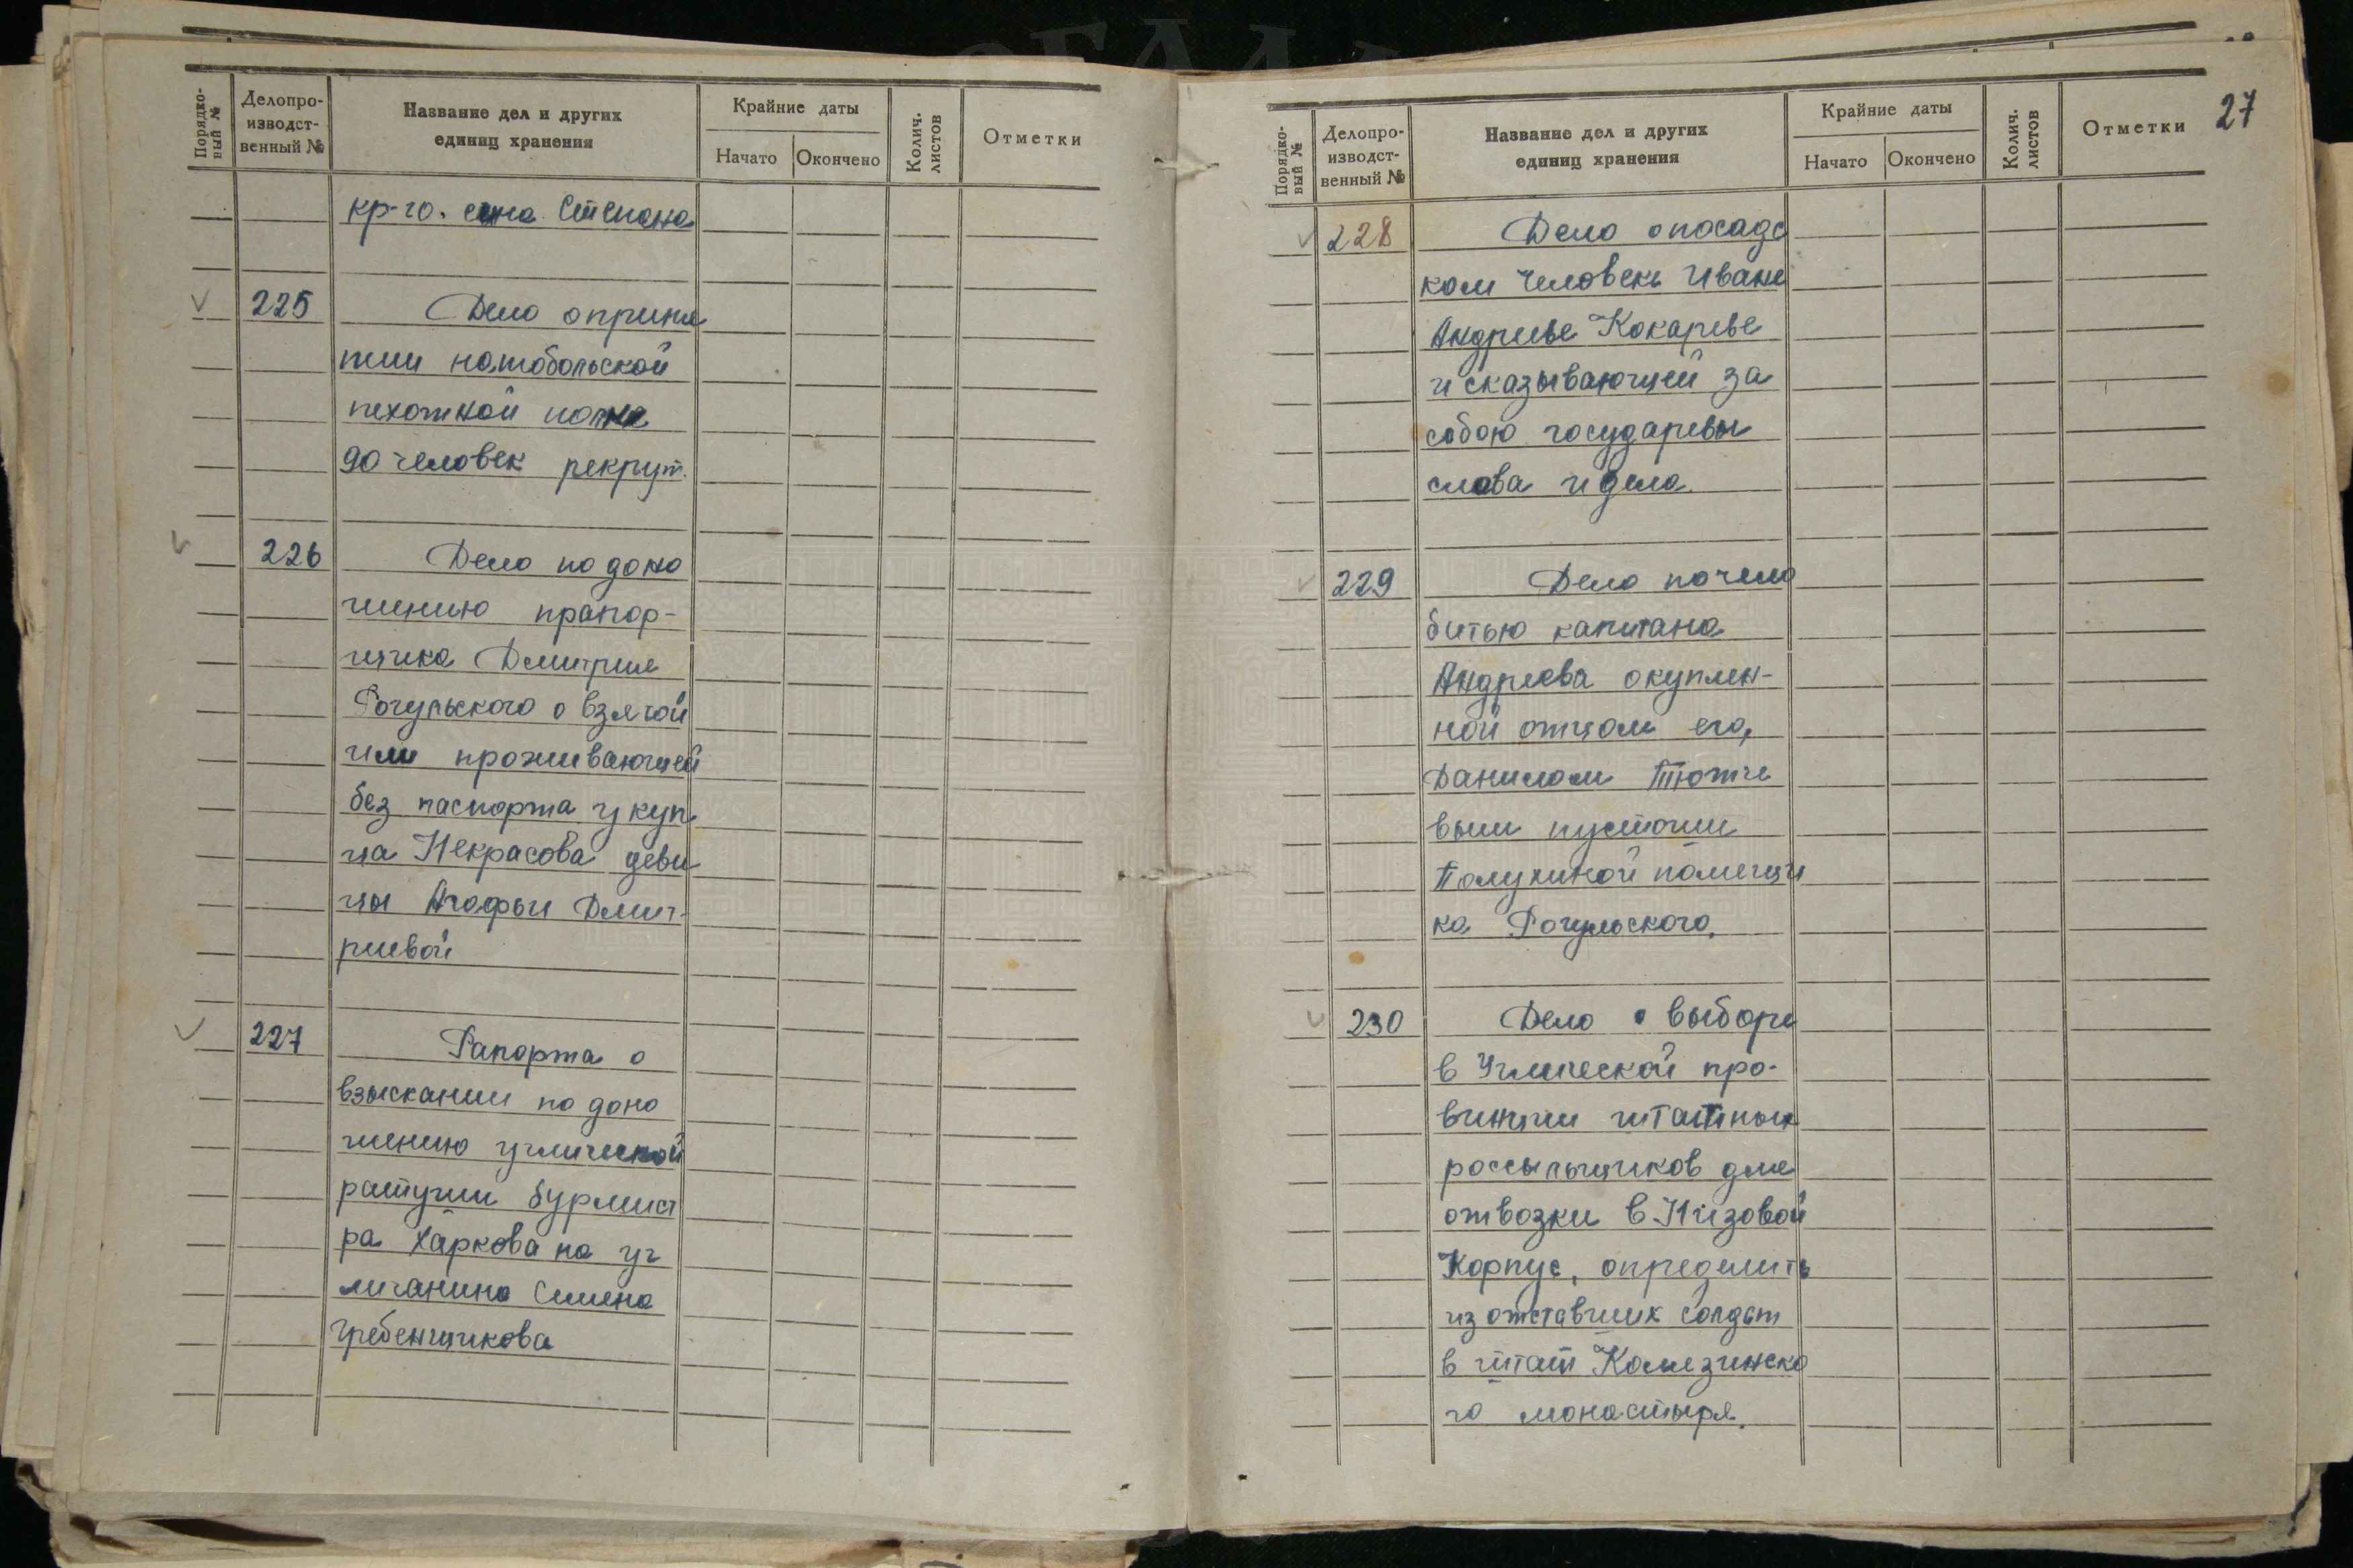 Порядко-
вый №
Делопро-
изводст-
венный №
Название дел и других
единиц хранения
Крайние даты
Начато
Окончено
Колич.
листов
Отметки
кр-го. сына Степана
225
Дело о приня
тии на тобольской
пехотной полк
90 человек рекрут.
226
Дело по доно
шению прапор-
щика Дмитрия
Рогульского о взятой
или проживающей
без паспорта у куп
ца Некрасова деви
цы Агафьи Дмит-
риевой
227
Рапорта о
взыскании по доно
шению углической
ратуши бурмист
ра Харкова на уг
личанина Семена
Гребенщикова
27
Порядко-
вый №
Делопро-
изводст-
венный №
Название дел и других
единиц хранения
Крайние даты
Начато
Окончено
Колич.
листов
Отметки
228
Дело о посадс
ком человеке Иване
Андриеве Кокареве
и сказывающей за
собою государевы
слова и дела.
229
Дело по чело
битью капитана
Андреева о куплен-
ной отцом его,
Данилом Тютче
вым пустоши
помещи
ка Рогульского.
230
Дело о выборе
в Углической про-
винции штатных
россыльщиков для
отвозки в Низовой
Корпус, определить
из отставших солдат
в штат Колязинско
го монастыря.